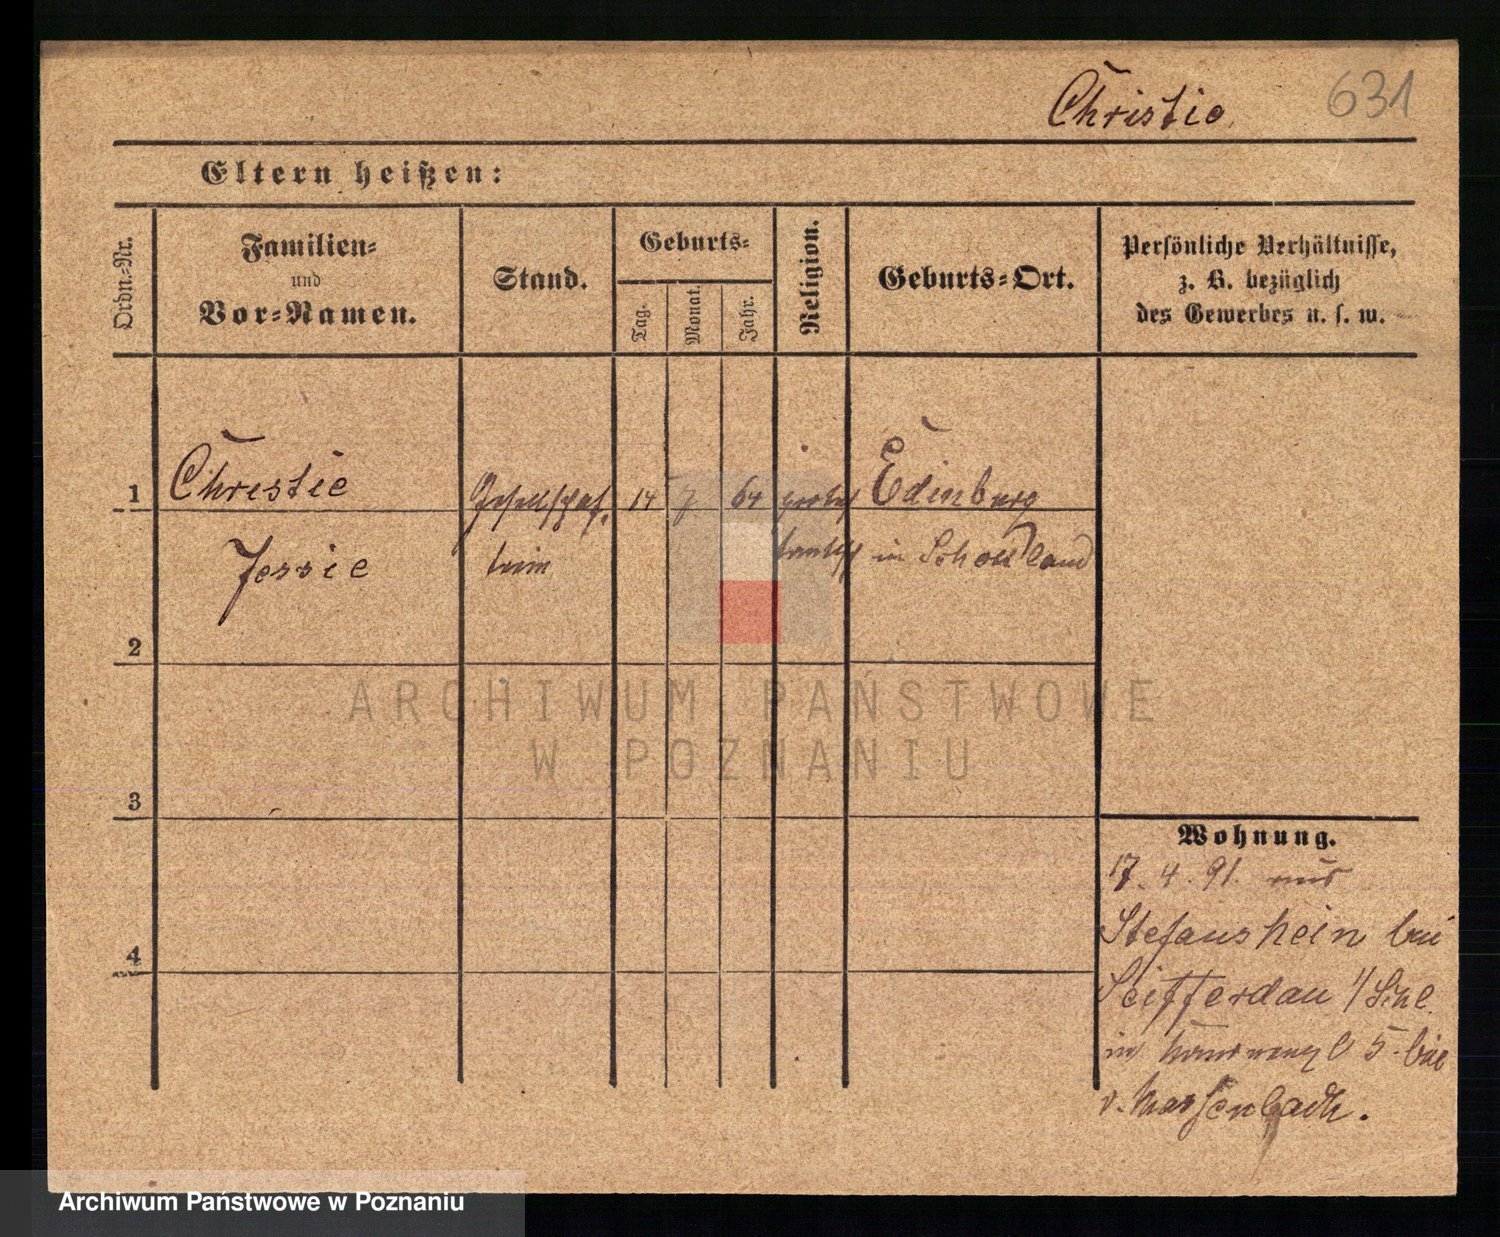 Christie
631
Eltern heißen:
Ordn.-Nr.
Familien-
und
Vor-Namen.
Stand.
Geburts-
Tag.
Monat.
Jahr.
Religion.
Geburts-Ort.
Persönliche Verhältnisse,
z. B. bezüglich
des Gewerbes u. s. w.
1
Christie
Gesellschaf.
14
7
64
protes
Edinburg
Jessie
terin
tantisch
in Schottland
2
3
4
Wohnung.
17. 4. 91. aus
Stefanshein bei
Seifferdau
in 5. bei
v. Massenbach.
ARCHIWUM PAŃSTWOWE
W POZNANIU
Archiwum Państwowe w Poznaniu